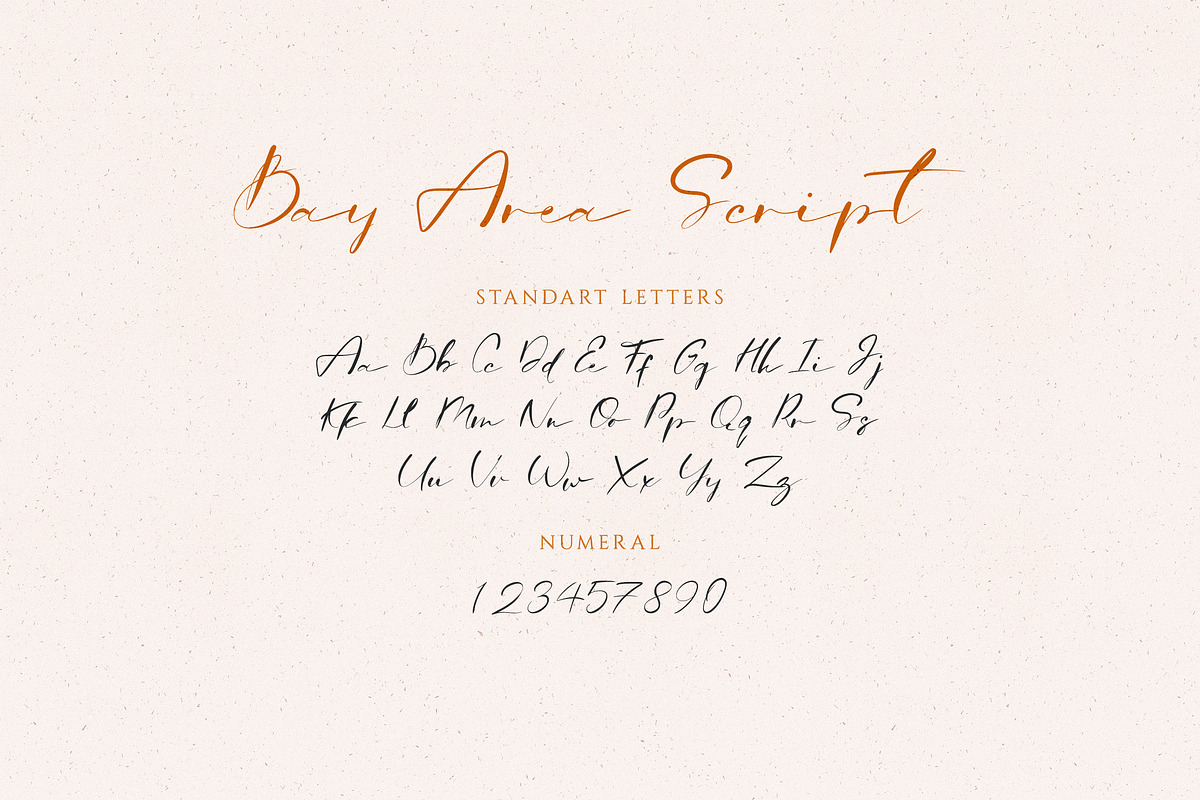 Bay Area Script
STANDART LETTERS
Aa Bb Cc Dd Ee Ff Gg Hh Ii Jj
Kk Ll Mm Nn Oo Pp Qq Rr Ss
Uu Vv Ww Xx Yy Zz
NUMERAL
123457890